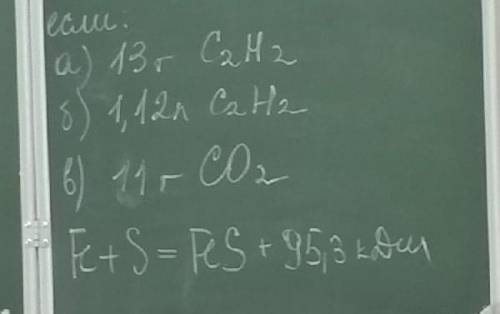 если:
а) 13г C₂H₂
б) 1,12л C₂H₂
в) 11г CO₂
Fe + S = FeS + 95,3 кДж